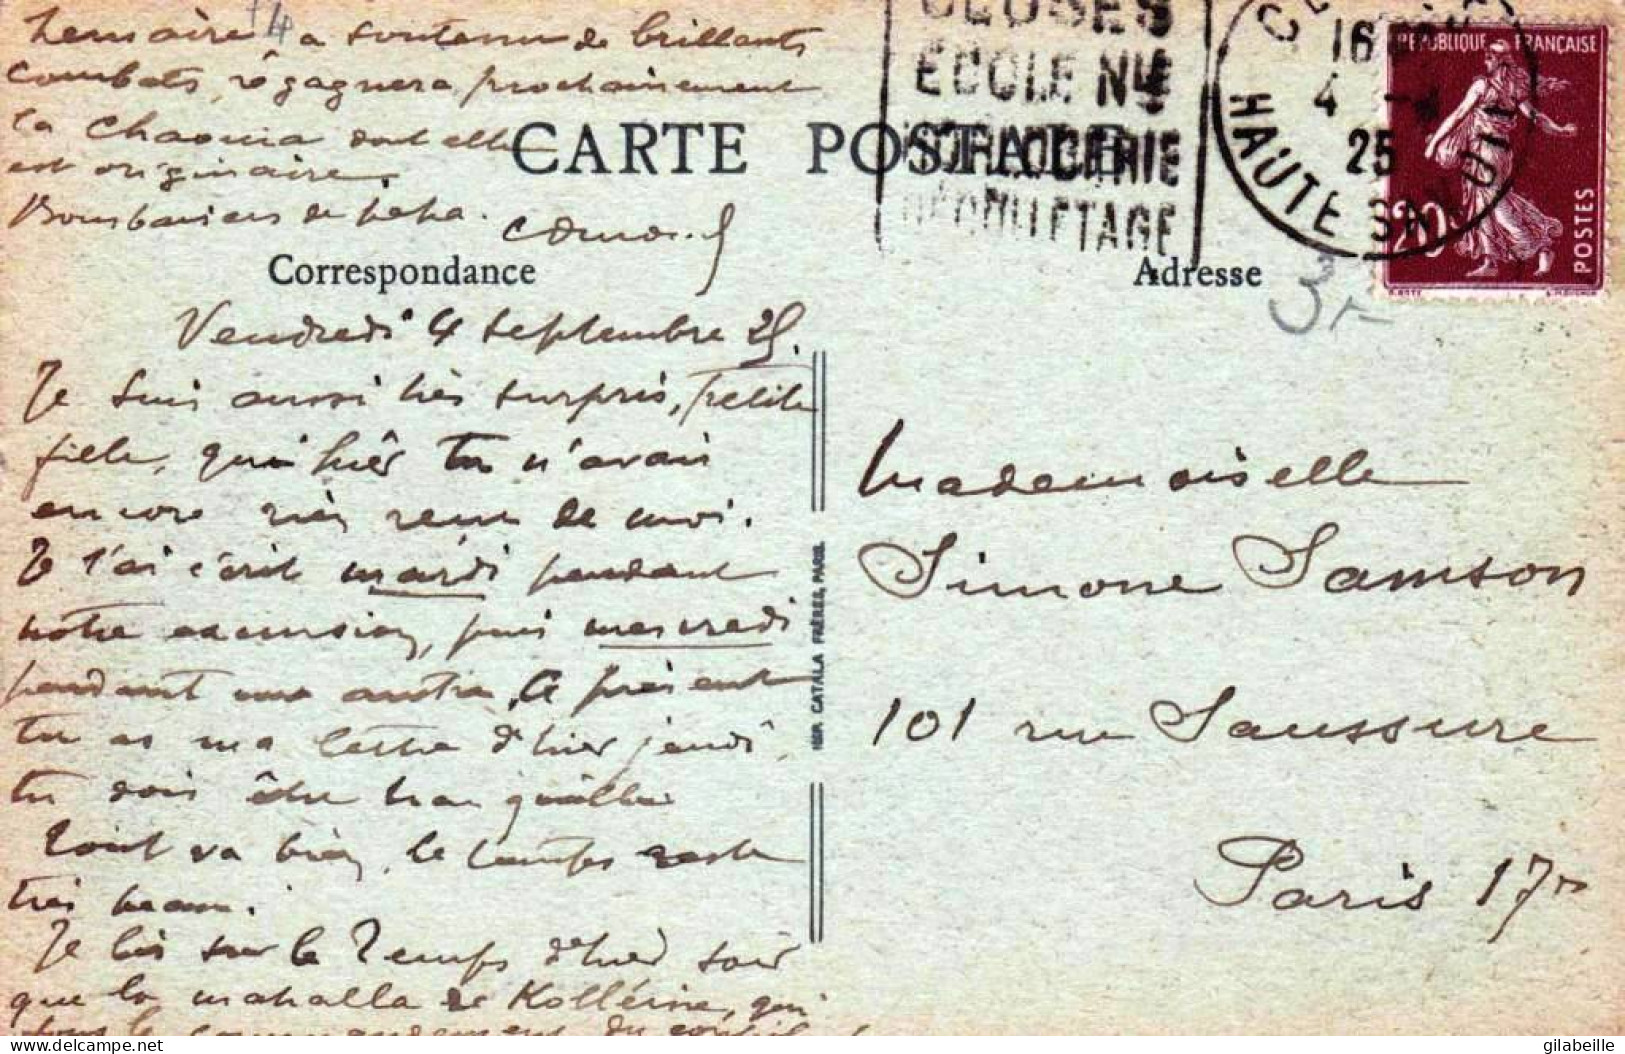 Lemaire a soutenu de brillants
combats, regagnera prochainement
la Chaouia dont elle
est originaire.
Bombardiers de
CLUSES
ECOLE NLE
HORLOGERIE
DÉCOLLETAGE
16
4 - 
25
HAUTE SAVOIE
REPUBLIQUE FRANÇAISE
20c
POSTES
CARTE POSTALE
Correspondance
Adresse
3,-
Vendredi 4 Septembre 25.
Je suis aussi très surpris, petite
fille, qu'hier tu n'avais
encore rien reçu de moi.
Je t'ai écrit mardi pendant
notre excursion, puis mercredi
pendant une autre, à présent
tu as ma lettre d'hier jeudi,
tu dois être tranquille.
Tout va bien, le temps reste
très beau.
Je lis sur le Temps d'hier soir
que la mahalla de qui
sous le commandement du
IMP. CATALA FRÈRES, PARIS.
Mademoiselle
Simone Samson
101 rue Saussure
Paris 17e
gilabeille
delcampe.net